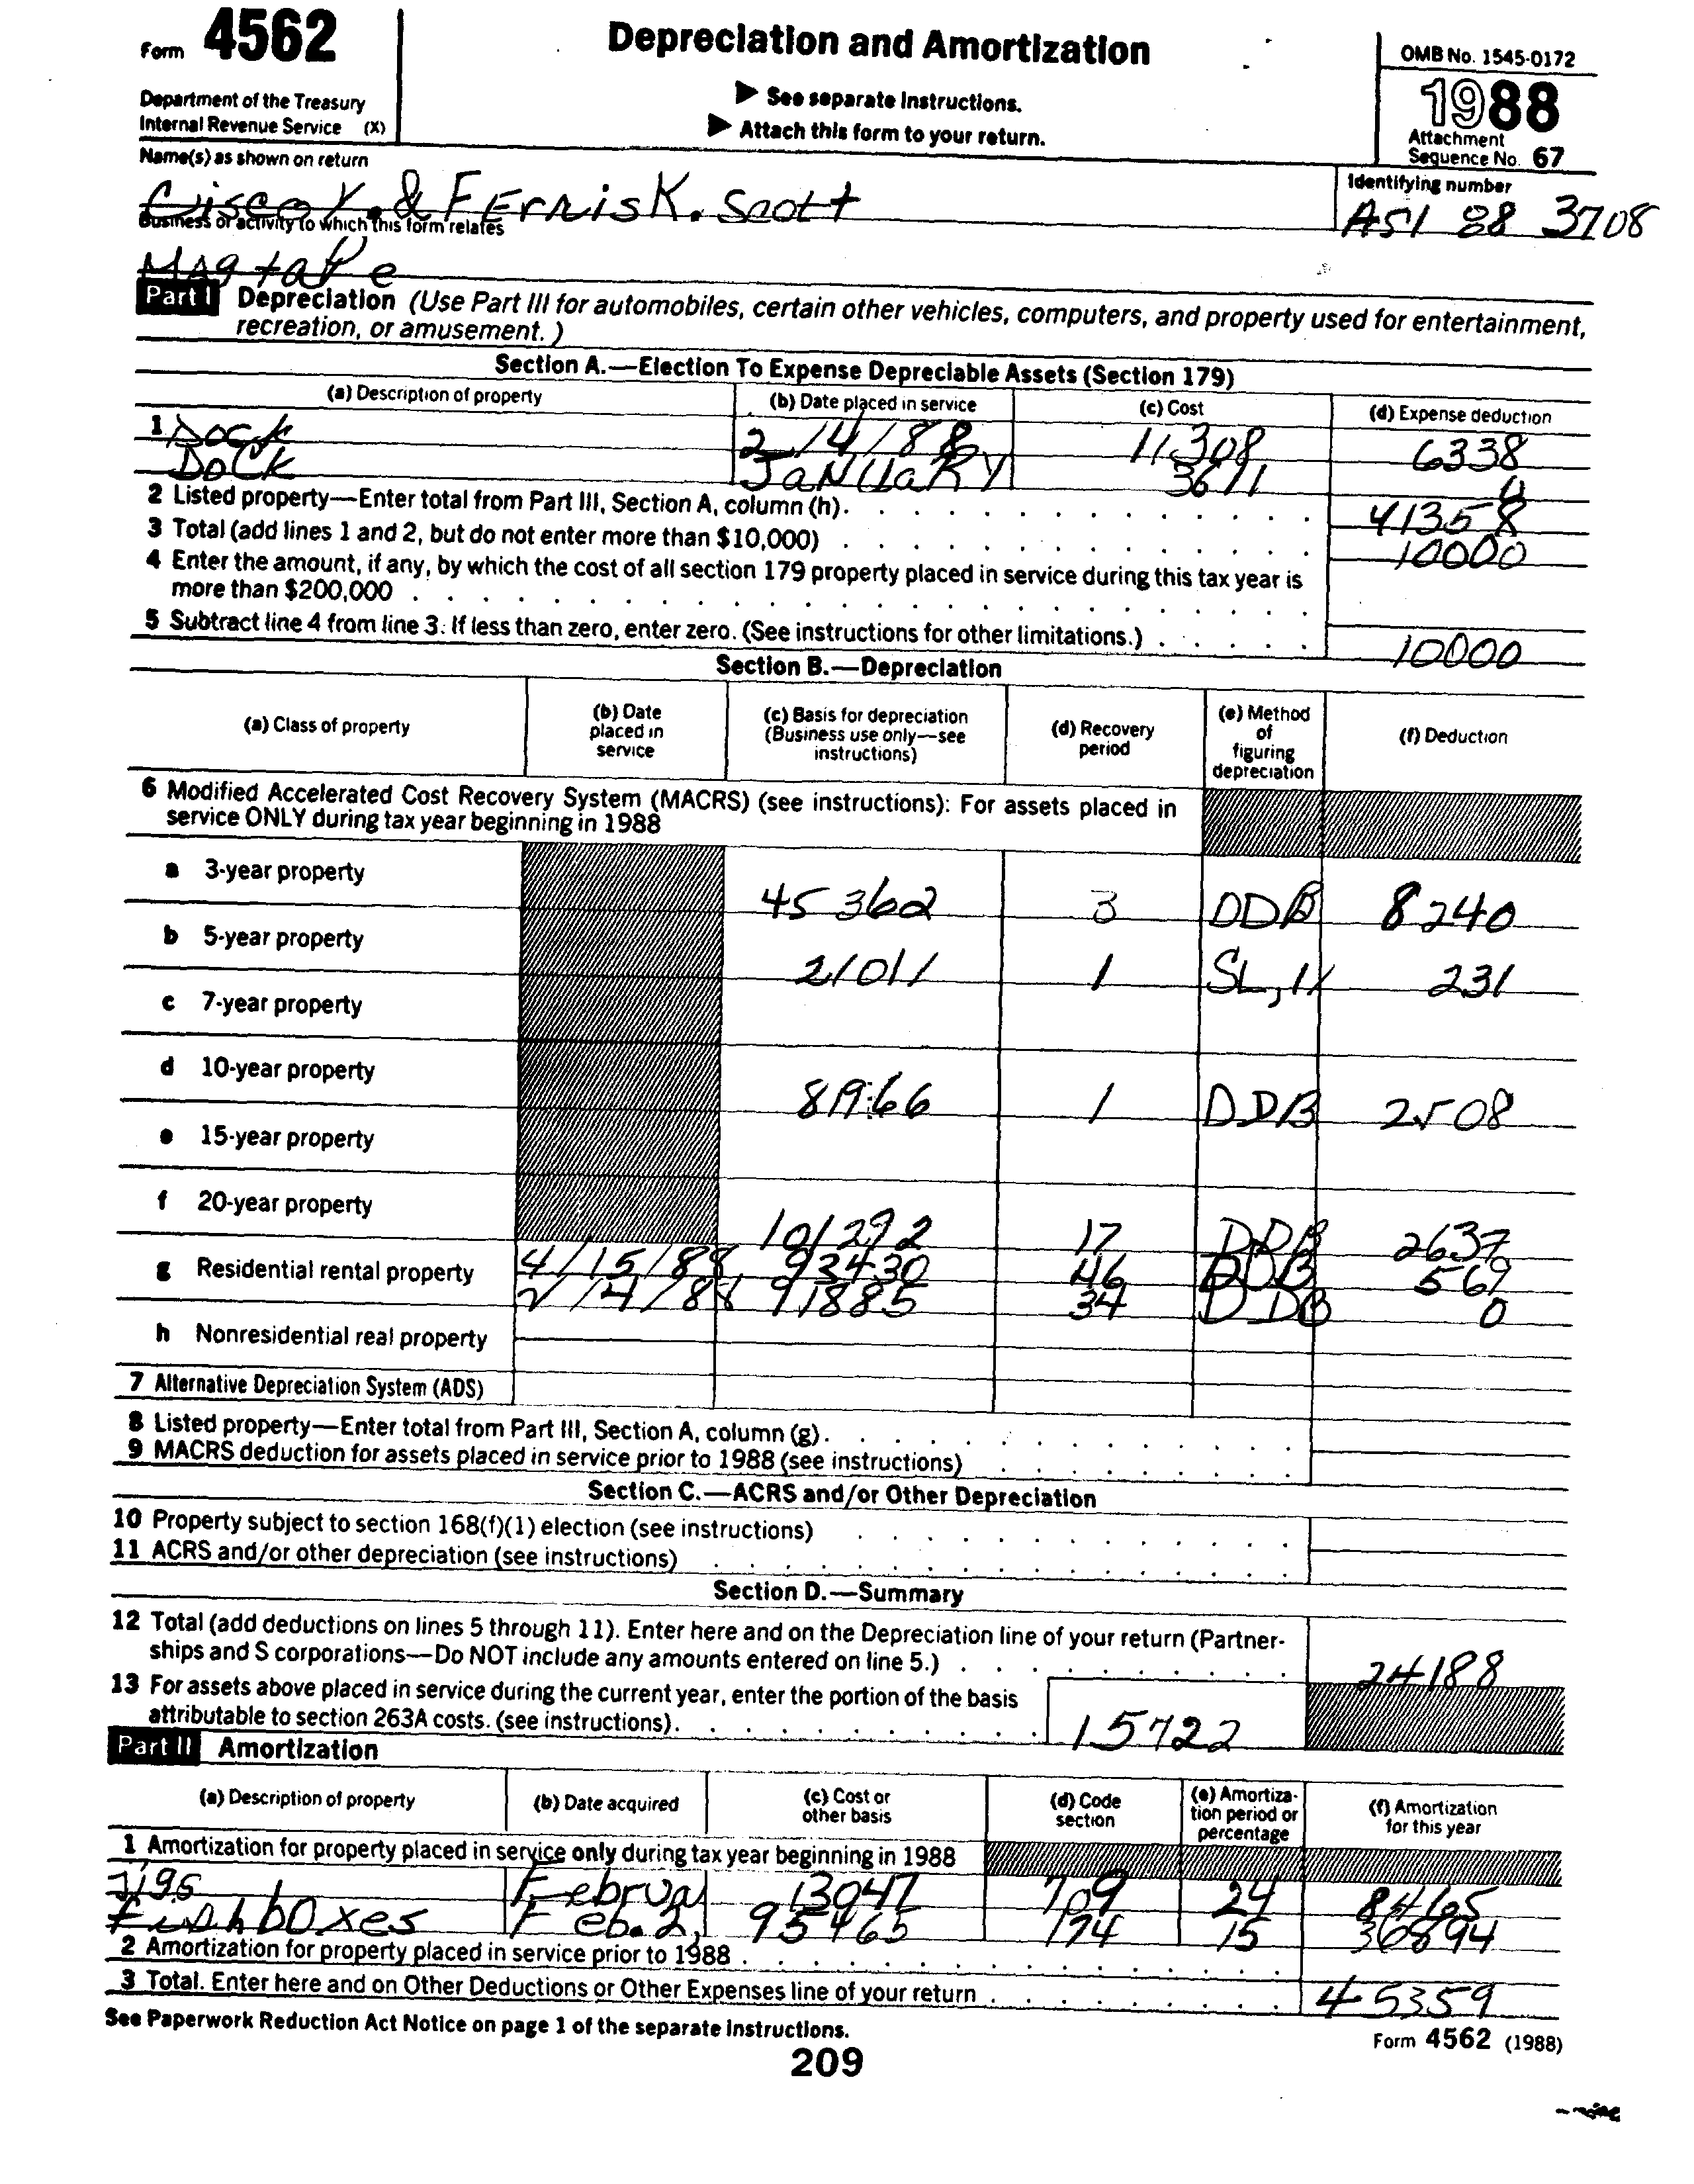 Form 4562
Depreciation and Amortization
OMB No. 1545-0172
Department of the Treasury
Internal Revenue Service (X)
▶ See separate instructions.
▶ Attach this form to your return.
1988
Attachment
Sequence No. 67
Name(s) as shown on return
Y. & FErrisK. Scott
Identifying number
AS1 88 3708
Business or activity to which this form relates
Magtape
Part I Depreciation (Use Part III for automobiles, certain other vehicles, computers, and property used for entertainment,
recreation, or amusement.)
Section A.—Election To Expense Depreciable Assets (Section 179)
(a) Description of property (b) Date placed in service (c) Cost (d) Expense deduction
1 Dock 2/4/88 11308 6338
Dock JaNuaRY 3611
2 Listed property—Enter total from Part III, Section A, column (h). 41358
3 Total (add lines 1 and 2, but do not enter more than $10,000) 10000
4 Enter the amount, if any, by which the cost of all section 179 property placed in service during this tax year is
more than $200,000
5 Subtract line 4 from line 3. If less than zero, enter zero. (See instructions for other limitations.) 10000
Section B.—Depreciation
(a) Class of property (b) Date placed in service (c) Basis for depreciation (Business use only—see instructions) (d) Recovery period (e) Method of figuring depreciation (f) Deduction
6 Modified Accelerated Cost Recovery System (MACRS) (see instructions): For assets placed in
service ONLY during tax year beginning in 1988
a 3-year property 45362 3 DDB 8240
b 5-year property 21011 1 SL, 231
c 7-year property
d 10-year property 1 DDB 2508
e 15-year property
f 20-year property 101292 17 DDB 2637
g Residential rental property 4/15/88 93430 46 DDB 569
2/4/88 91885 34 DDB 0
h Nonresidential real property
7 Alternative Depreciation System (ADS)
8 Listed property—Enter total from Part III, Section A, column (g).
9 MACRS deduction for assets placed in service prior to 1988 (see instructions)
Section C.—ACRS and/or Other Depreciation
10 Property subject to section 168(f)(1) election (see instructions)
11 ACRS and/or other depreciation (see instructions)
Section D.—Summary
12 Total (add deductions on lines 5 through 11). Enter here and on the Depreciation line of your return (Partner-
ships and S corporations—Do NOT include any amounts entered on line 5.) 24188
13 For assets above placed in service during the current year, enter the portion of the basis
attributable to section 263A costs. (see instructions). 15722
Part II Amortization
(a) Description of property (b) Date acquired (c) Cost or other basis (d) Code section (e) Amortiza-tion period or percentage (f) Amortization for this year
1 Amortization for property placed in service only during tax year beginning in 1988
Jigs Februa 13047 709 24 8465
Fishboxes Feb. 2, 95465 174 15 36894
2 Amortization for property placed in service prior to 1988
3 Total. Enter here and on Other Deductions or Other Expenses line of your return 45359
See Paperwork Reduction Act Notice on page 1 of the separate instructions.
Form 4562 (1988)
209